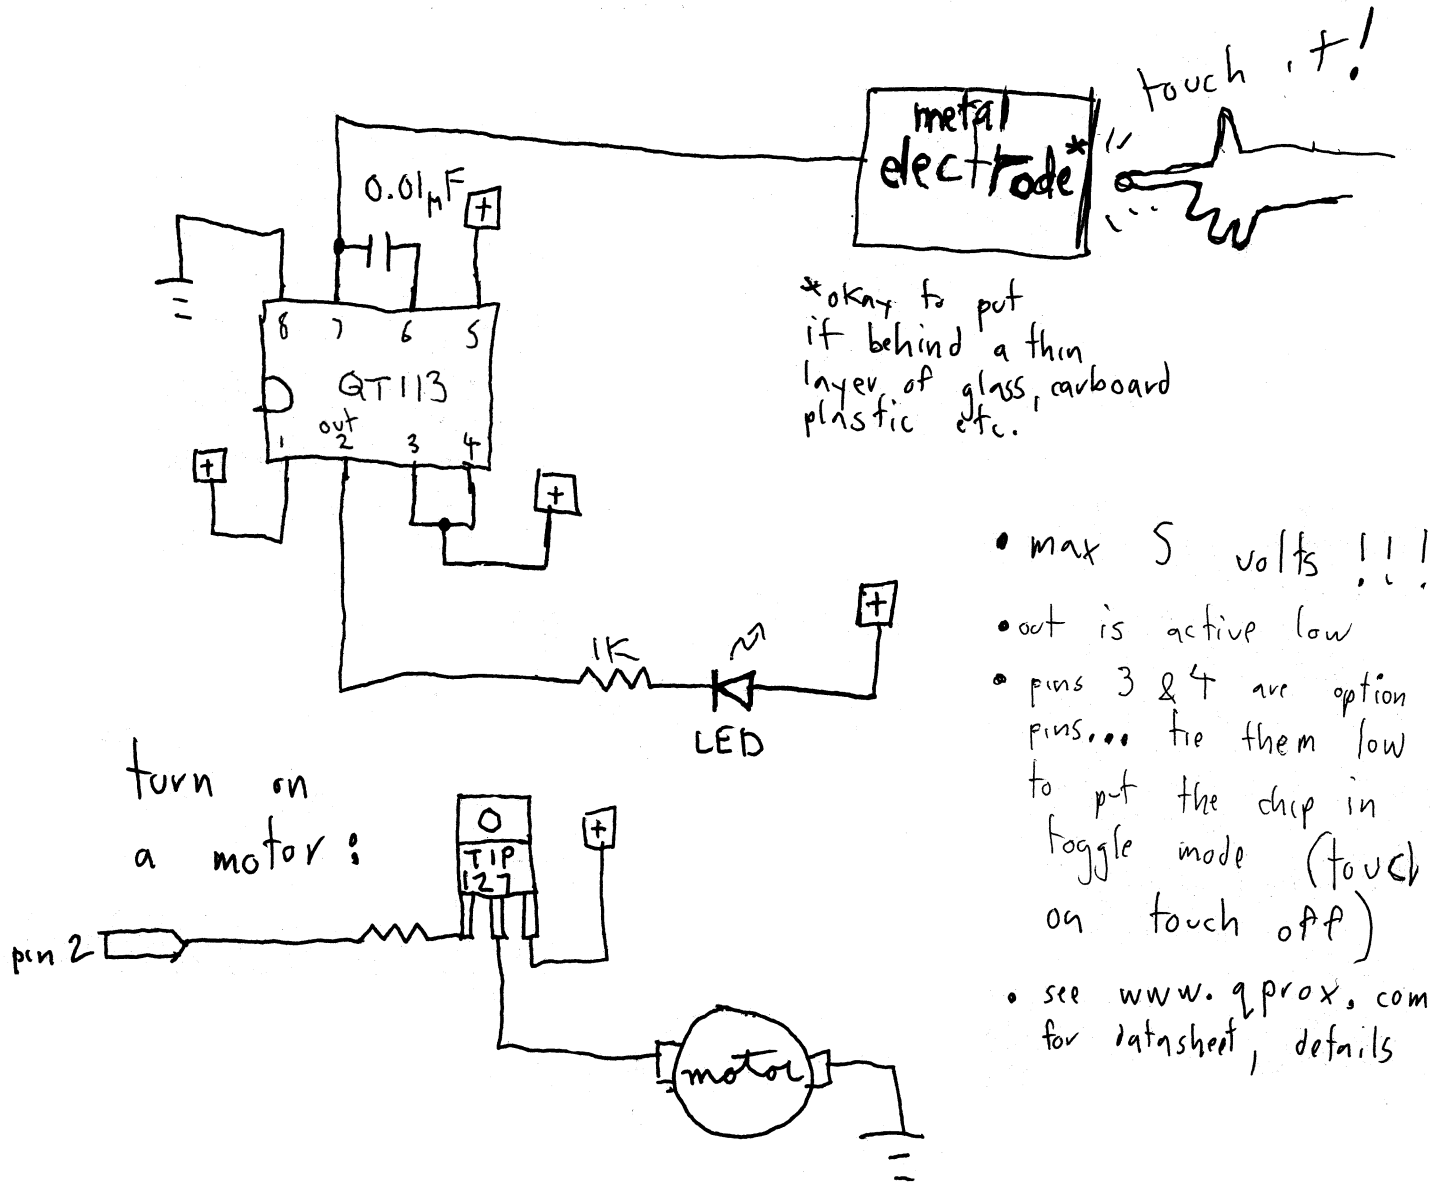 touch it!
metal
electrode*
0.01µF
+
8 7 6 5
QT113
out
1 2 3 4
+
+
*okay to put
it behind a thin
layer of glass, carboard
plastic etc.
• max 5 volts!!!
• out is active low
• pins 3 & 4 are option
pins... tie them low
to put the chip in
toggle mode (touch
on touch off)
• see www.qprox.com
for datasheet, details
+
1K
LED
turn on
a motor:
TIP
127
+
pin 2
motor